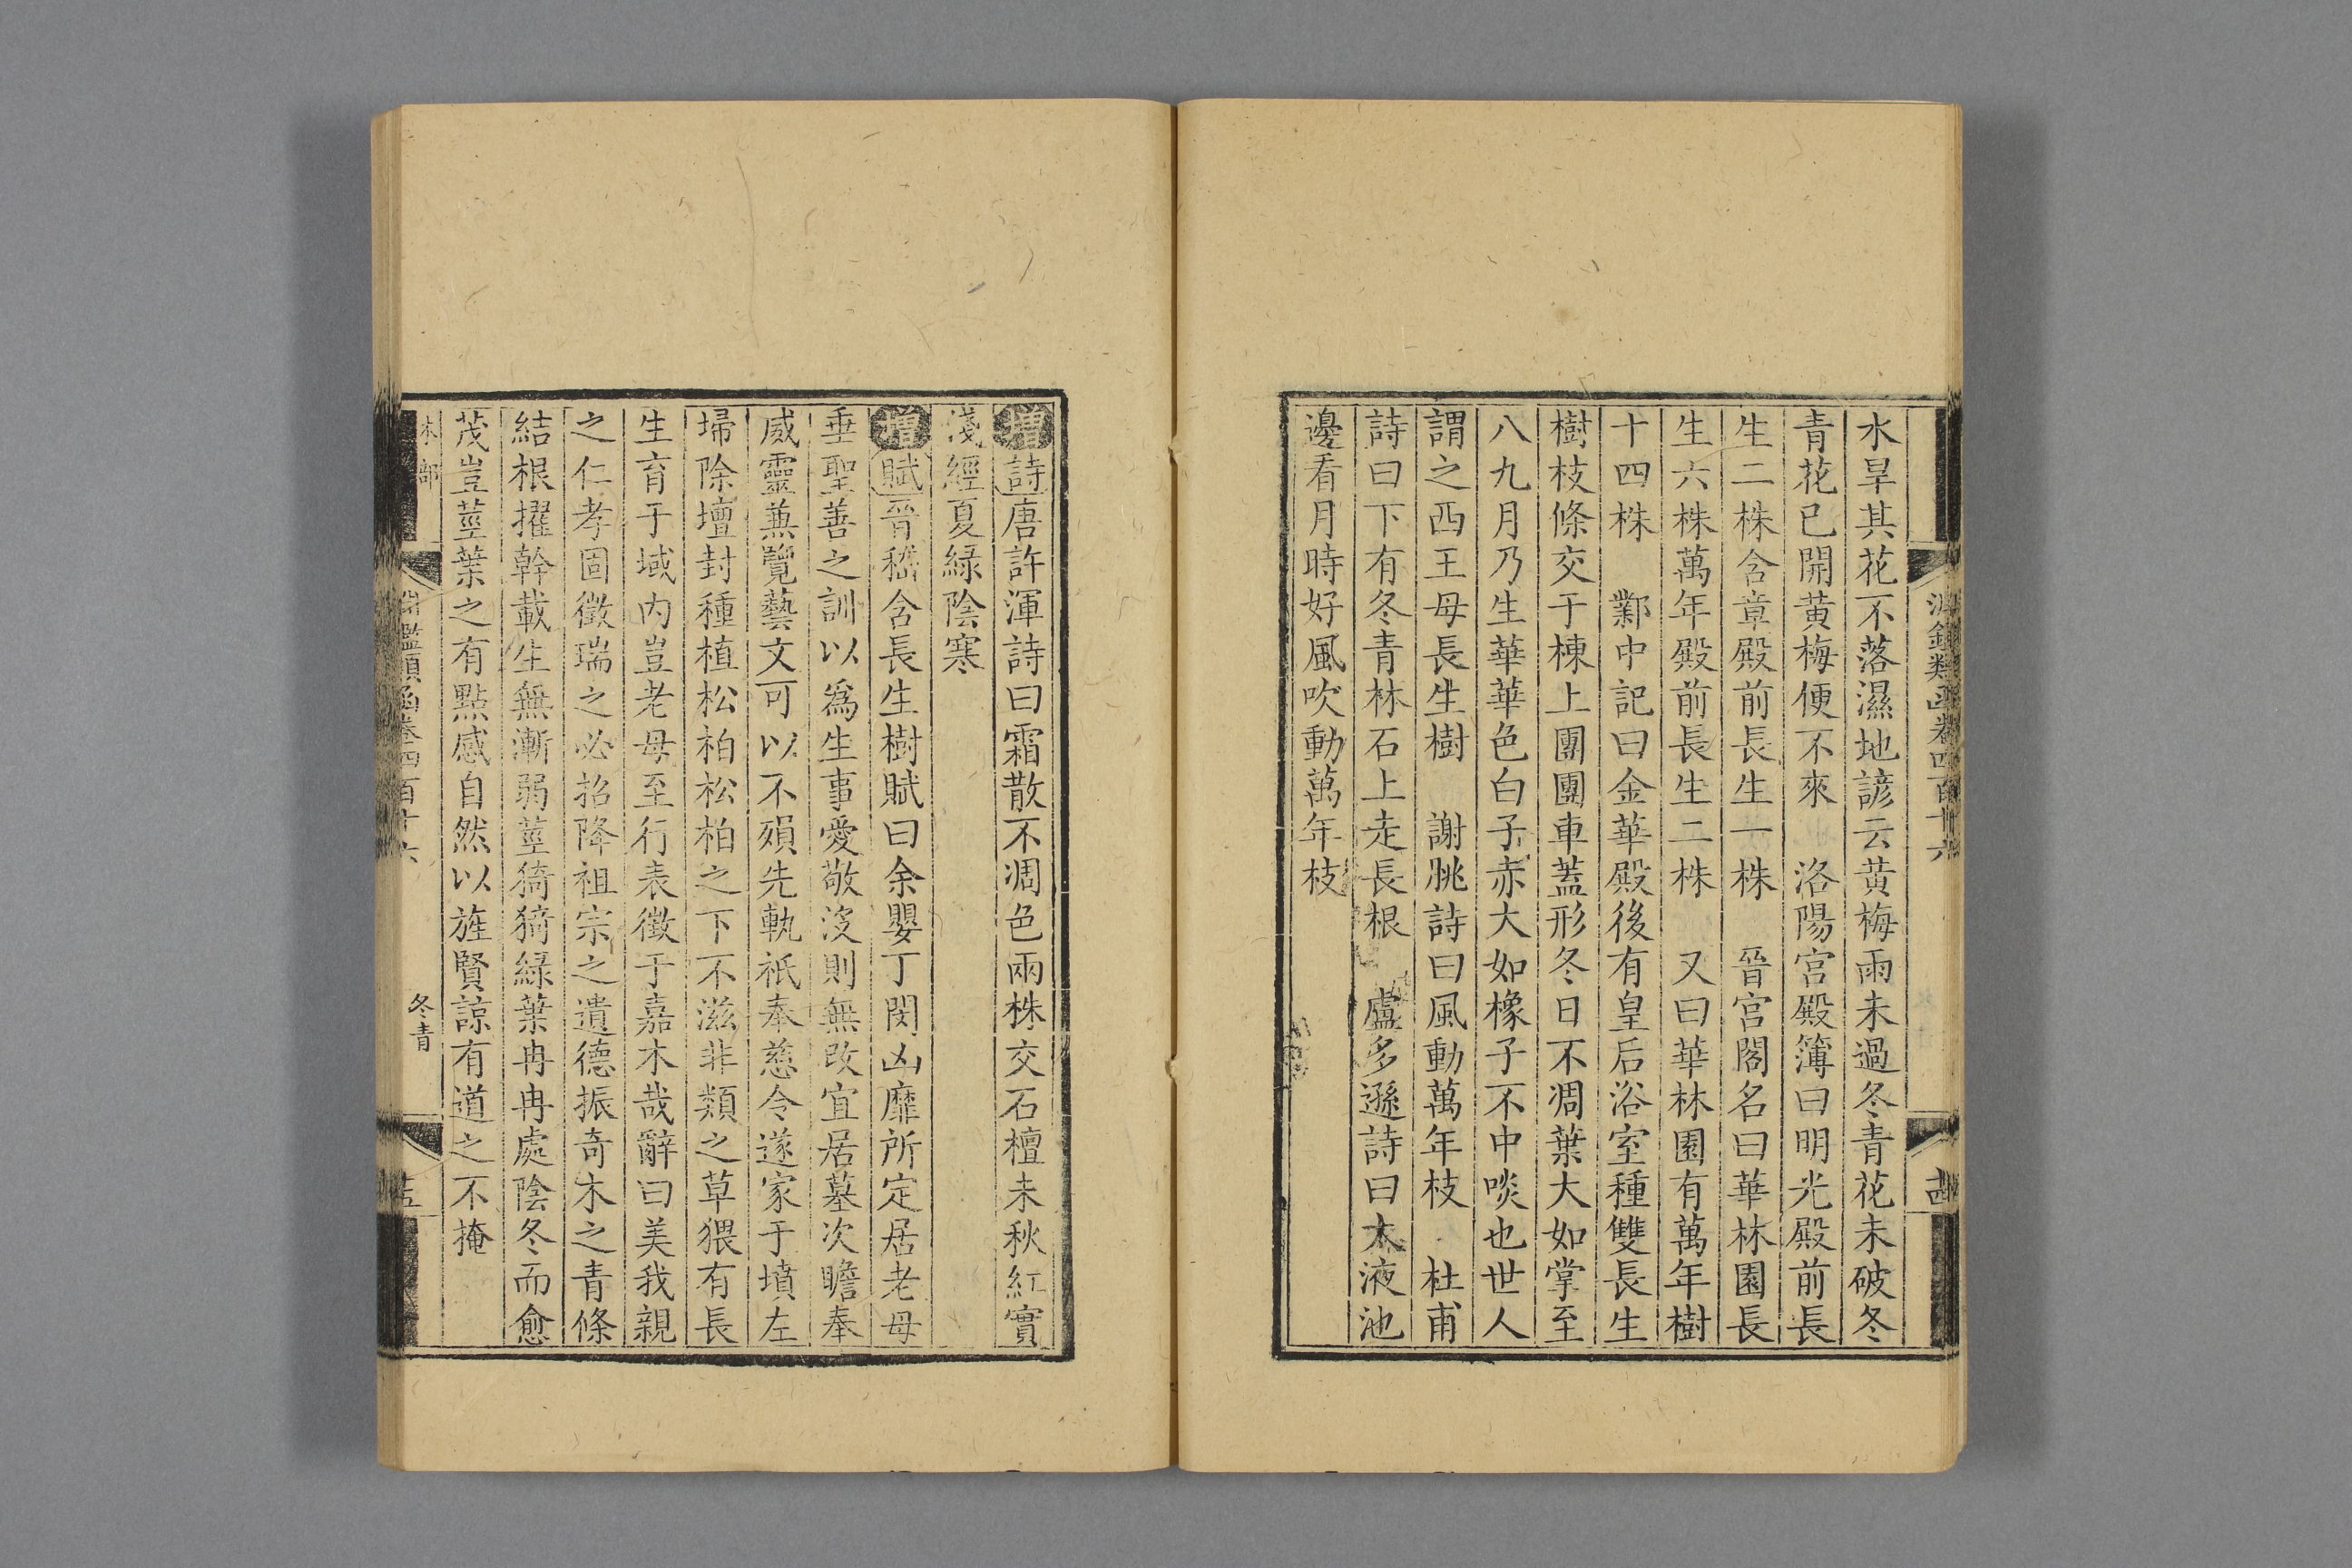 淵鑑類函卷四百十六
水旱其花不落濕地諺云黃梅雨未過冬青花未破冬
青花已開黃梅便不來 洛陽宮殿簿曰明光殿前長
生二株含章殿前長生一株 晉宮閣名曰華林園長
生六株萬年殿前長生二株 又曰華林園有萬年樹
十四株 鄴中記曰金華殿後有皇后浴室種雙長生
樹枝條交于棟上團團車蓋形冬日不凋葉大如掌至
八九月乃生華華色白子赤大如橡子不中啖也世人
謂之西王母長生樹 謝朓詩曰風動萬年枝 杜甫
詩曰下有冬青林石上走長根 盧多遜詩曰太液池
邊看月時好風吹動萬年枝
增詩唐許渾詩曰霜散不凋色兩株交石檀未秋紅實
淺經夏綠陰寒
增賦晉嵇含長生樹賦曰余嬰丁閔凶靡所定居老母
垂聖善之訓以爲生事愛敬沒則無改宜居墓次瞻奉
威靈兼覽藝文可以不殞先軌祇奉慈令遂家于墳左
埽除壇封種植松柏松柏之下不滋非類之草猥有長
生育于域內豈老母至行表徵于嘉木哉辭曰美我親
之仁孝固徵瑞之必招降祖宗之遺德振奇木之青條
結根擢幹載生無漸弱莖猗猗綠葉冉冉處陰冬而愈
茂豈莖葉之有點感自然以旌賢諒有道之不掩
木部
淵鑑類函卷四百十六
冬青